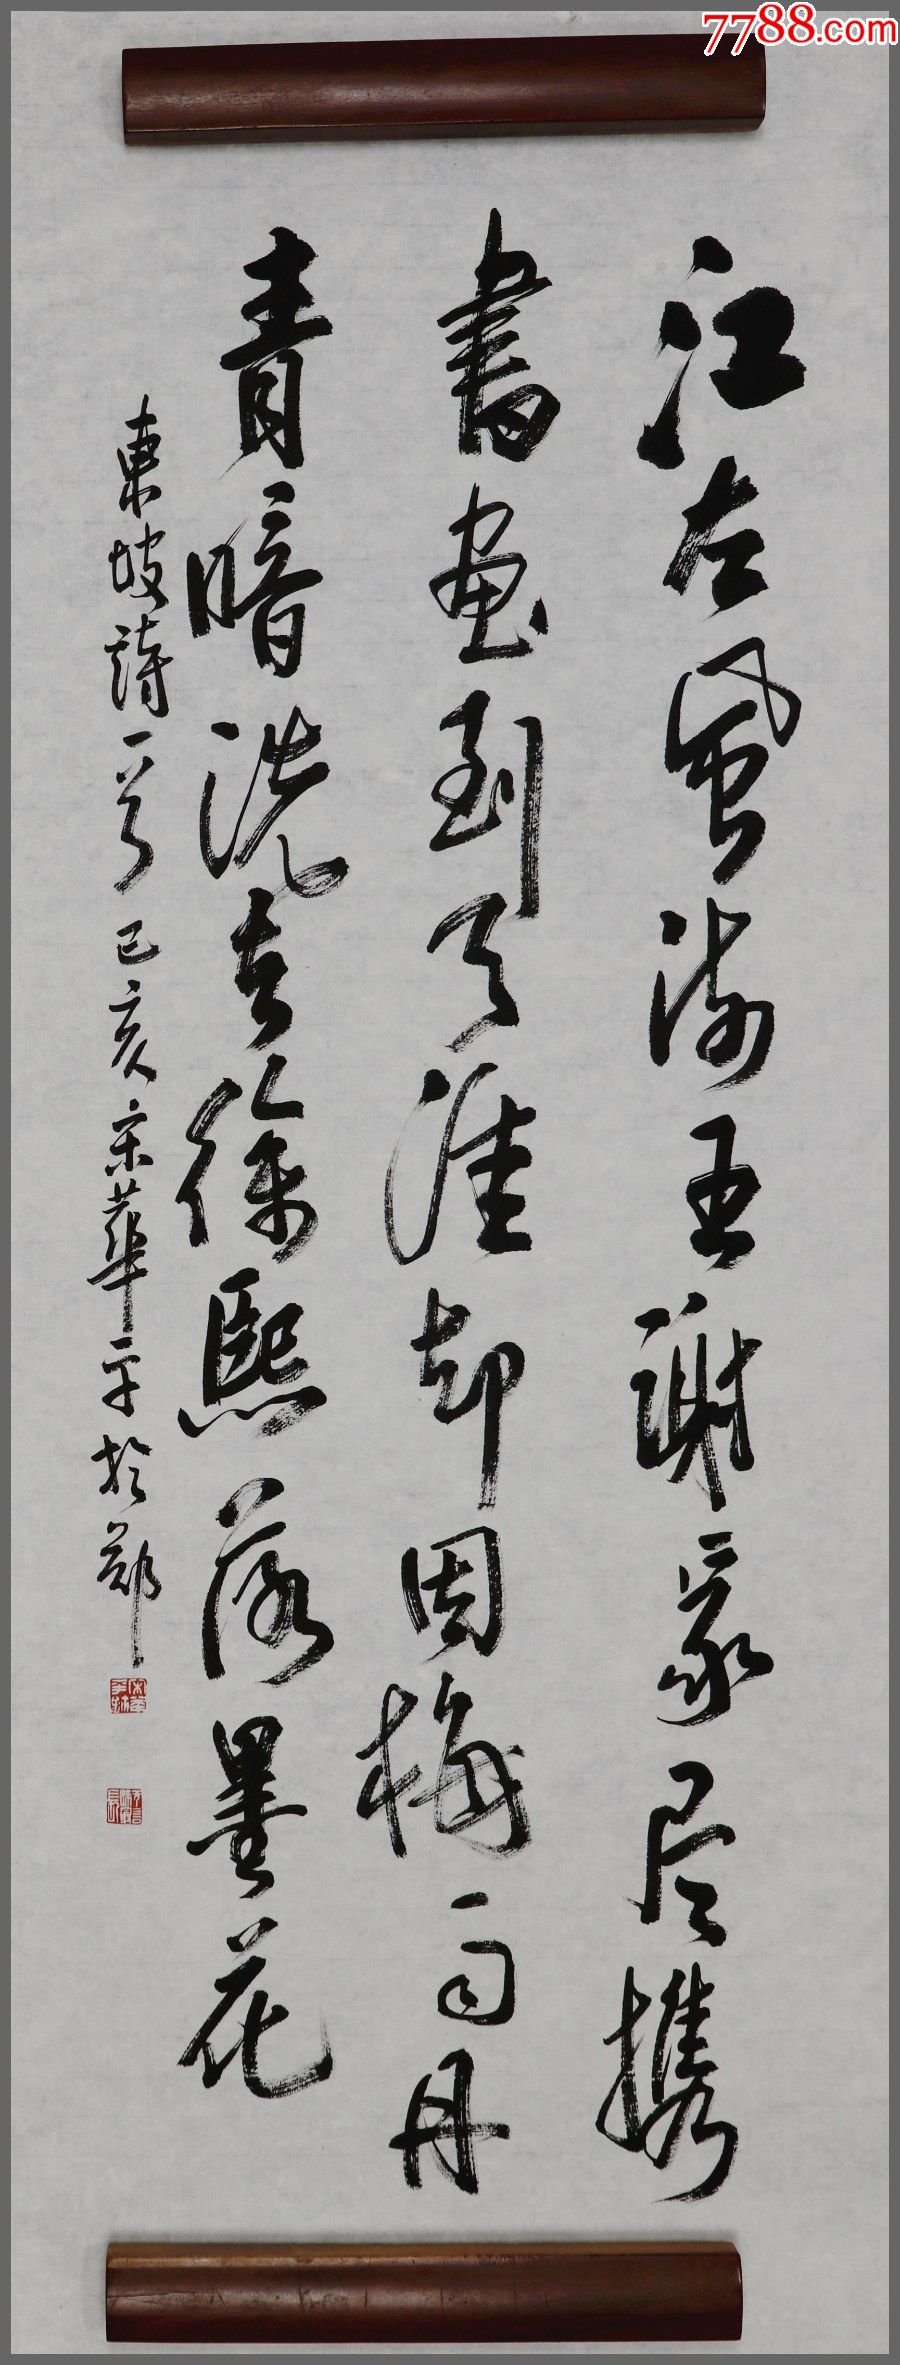 江左風流王謝家尽携
書画到天涯却因梅雨丹
青暗洗出徐熙落墨花
東坡詩一首己亥宋華平於鄭
7788.com